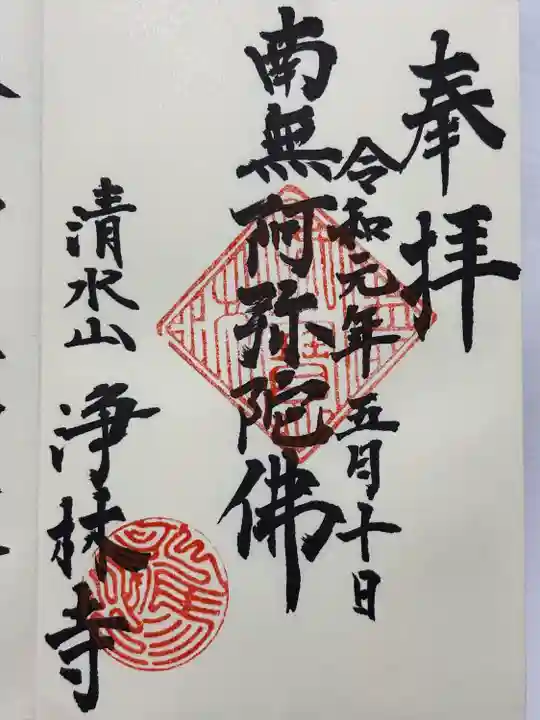 奉拝
令和元年五月十日
南無阿弥陀佛
清水山
浄林寺